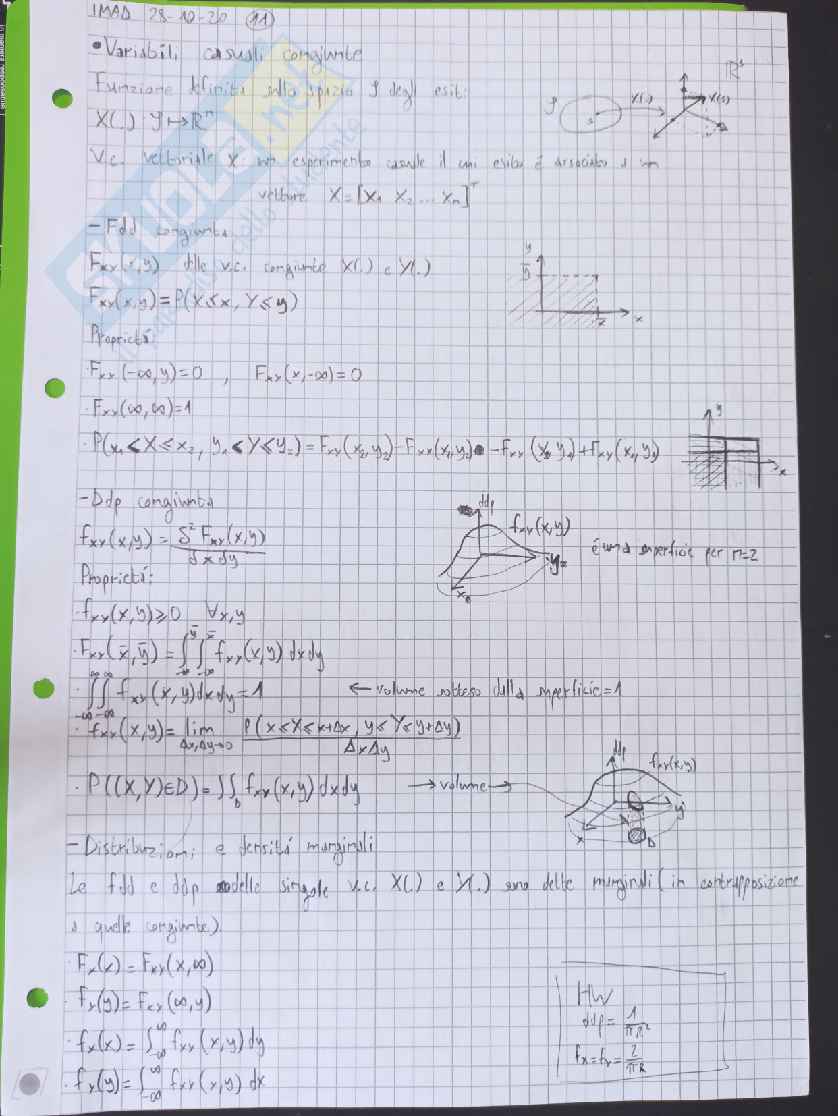 IMAD 28-10-20 (11)
• Variabili casuali congiunte
Funzione definita sullo spazio S degli esiti
X(.) S ↦ Rⁿ
S s X(.) X(s) R³
V.C. vettoriale X: un esperimento casuale il cui esito è associato a un
vettore X = [X₁ X₂ ... Xₙ]ᵀ
- Fdd congiunta
F_XY(x,y) delle v.c. congiunte X(.) e Y(.)
F_XY(x,y) = P(X ≤ x, Y ≤ y)
y ȳ x̄ x
Proprietà:
· F_XY(-∞,y) = 0 , F_XY(x,-∞) = 0
· F_XY(∞,∞) = 1
· P(x₁ < X ≤ x₂, y₁ < Y ≤ y₂) = F_XY(x₂,y₂) - F_XY(x₁,y₂) - F_XY(x₂,y₁) + F_XY(x₁,y₁)
y x
- Ddp congiunta
f_XY(x,y) = δ² F_XY(x,y) / dxdy
ddp f_XY(x,y) é una superficie per n=2
Proprietá:
· f_XY(x,y) ≥ 0 ∀x,y
· F_XY(x̄,ȳ) = ∫_-∞^ȳ ∫_-∞^x̄ f_XY(x,y) dxdy
· ∫_-∞^∞ ∫_-∞^∞ f_XY(x,y) dxdy = 1 ← volume sotteso dalla superficie = 1
· f_XY(x,y) = lim_Δx,Δy→0 P(x ≤ X ≤ x+Δx, y ≤ Y ≤ y+Δy) / ΔxΔy
· P((X,Y) ∈ D) = ∫∫_D f_XY(x,y) dxdy → volume →
ddp f_XY(x,y) y x D
- Distribuzioni e densitá marginali
Le fdd e ddp delle singole v.c. X(.) e Y(.) sono dette marginali (in contrapposizione
a quelle congiunte)
· F_X(x) = F_XY(x,∞)
· F_Y(y) = F_XY(∞,y)
· f_X(x) = ∫_-∞^∞ f_XY(x,y) dy
· f_Y(y) = ∫_-∞^∞ f_XY(x,y) dx
HW
ddp = 1/πR²
f_X = f_Y = 2/πR
SKUOLA.net